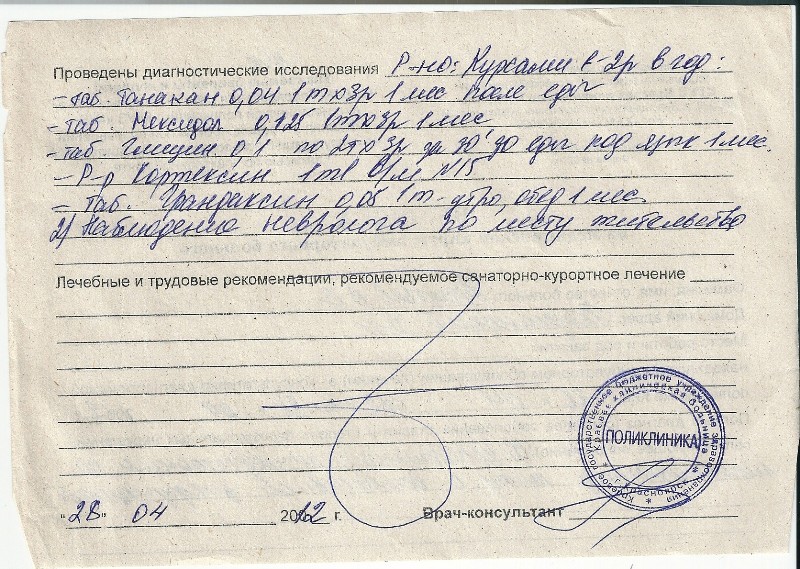 Проведены диагностические исследования Р-но: Курсами 1-2р в год:
- таб. Танакан 0,04 1т х 3р 1 мес после еды
- таб. Мексидол 0,125 1т х 3р 1 мес
- таб. Глицин 0,1 по 2т х 3р за 30' до еды под язык 1 мес.
- Р-р Кортексин 1 в/м N15
- таб. Грандаксин 0,05 1т - утро, обед 1 мес.
2) Наблюдение невролога по месту жительства
Лечебные и трудовые рекомендации, рекомендуемое санаторно-курортное лечение
Краевое государственное бюджетное учреждение здравоохранения
Краевая клиническая больница
ПОЛИКЛИНИКА
* г. Красноярск *
"28" 04 2012 г. Врач-консультант